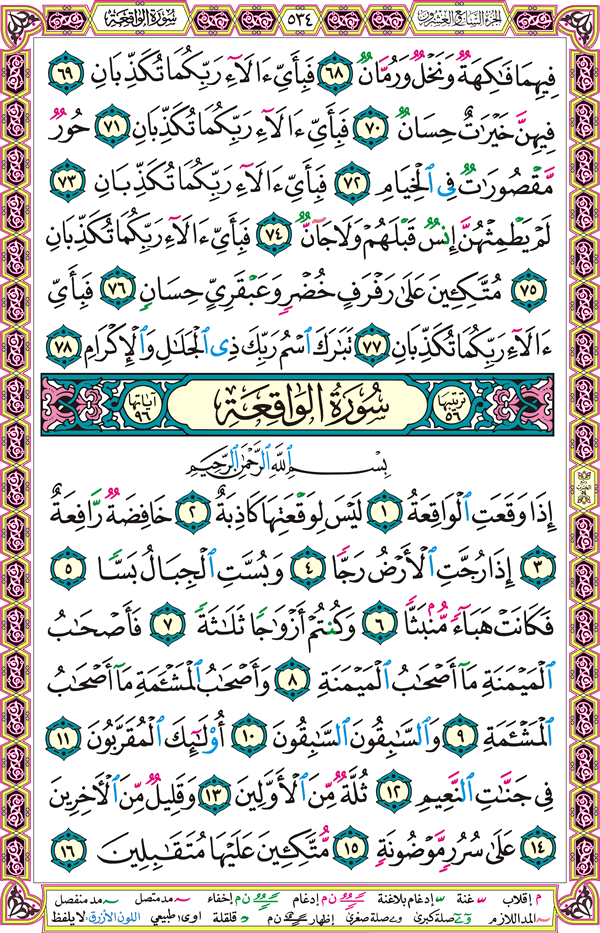 الجزء السابع والعشرون ٥٣٤ سورة الواقعة
فِيهِمَا فَاكِهَةٌ وَنَخْلٌ وَرُمَّانٌ ٦٨ فَبِأَيِّ ءَالَآءِ رَبِّكُمَا تُكَذِّبَانِ ٦٩
فِيهِنَّ خَيْرَاتٌ حِسَانٌ ٧٠ فَبِأَيِّ ءَالَآءِ رَبِّكُمَا تُكَذِّبَانِ ٧١ حُورٌ
مَّقْصُورَاتٌ فِي الْخِيَامِ ٧٢ فَبِأَيِّ ءَالَآءِ رَبِّكُمَا تُكَذِّبَانِ ٧٣
لَمْ يَطْمِثْهُنَّ إِنسٌ قَبْلَهُمْ وَلَا جَآنٌّ ٧٤ فَبِأَيِّ ءَالَآءِ رَبِّكُمَا تُكَذِّبَانِ
٧٥ مُتَّكِئِينَ عَلَىٰ رَفْرَفٍ خُضْرٍ وَعَبْقَرِيٍّ حِسَانٍ ٧٦ فَبِأَيِّ
ءَالَآءِ رَبِّكُمَا تُكَذِّبَانِ ٧٧ تَبَارَكَ اسْمُ رَبِّكَ ذِي الْجَلَالِ وَالْإِكْرَامِ ٧٨
ترتيبها ٥٦ سُورَةُ الوَاقِعَةِ آياتها ٩٦
بِسْمِ اللَّهِ الرَّحْمَٰنِ الرَّحِيمِ
إِذَا وَقَعَتِ الْوَاقِعَةُ ١ لَيْسَ لِوَقْعَتِهَا كَاذِبَةٌ ٢ خَافِضَةٌ رَّافِعَةٌ
٣ إِذَا رُجَّتِ الْأَرْضُ رَجًّا ٤ وَبُسَّتِ الْجِبَالُ بَسًّا ٥
فَكَانَتْ هَبَآءً مُّنۢبَثًّا ٦ وَكُنتُمْ أَزْوَاجًا ثَلَاثَةً ٧ فَأَصْحَابُ
الْمَيْمَنَةِ مَآ أَصْحَابُ الْمَيْمَنَةِ ٨ وَأَصْحَابُ الْمَشْئَمَةِ مَآ أَصْحَابُ
الْمَشْئَمَةِ ٩ وَالسَّابِقُونَ السَّابِقُونَ ١٠ أُوْلَٰٓئِكَ الْمُقَرَّبُونَ ١١
فِي جَنَّاتِ النَّعِيمِ ١٢ ثُلَّةٌ مِّنَ الْأَوَّلِينَ ١٣ وَقَلِيلٌ مِّنَ الْآخِرِينَ
١٤ عَلَىٰ سُرُرٍ مَّوْضُونَةٍ ١٥ مُّتَّكِئِينَ عَلَيْهَا مُتَقَابِلِينَ ١٦
م إقلاب غنة إدغام بلاغنة ن م إدغام ن م إخفاء مد متصل مد منفصل
المد اللازم صلة كبرى صلة صغرى إظهار ن م قلقلة اوى: طبيعي اللون الأزرق: لا يلفظ